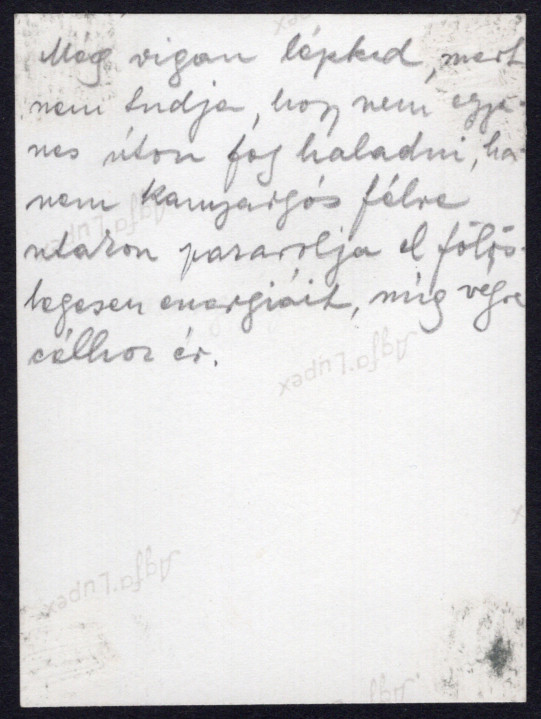 Még vigan lépked, mert
nem tudja, hogy nem egye-
nes úton fog haladni, ha-
nem kanyargós félre
utakon pazarolja el fölös-
legesen energiáit, míg végre
célhoz ér.
Agfa Lupex
Agfa Lupex
Agfa Lupex